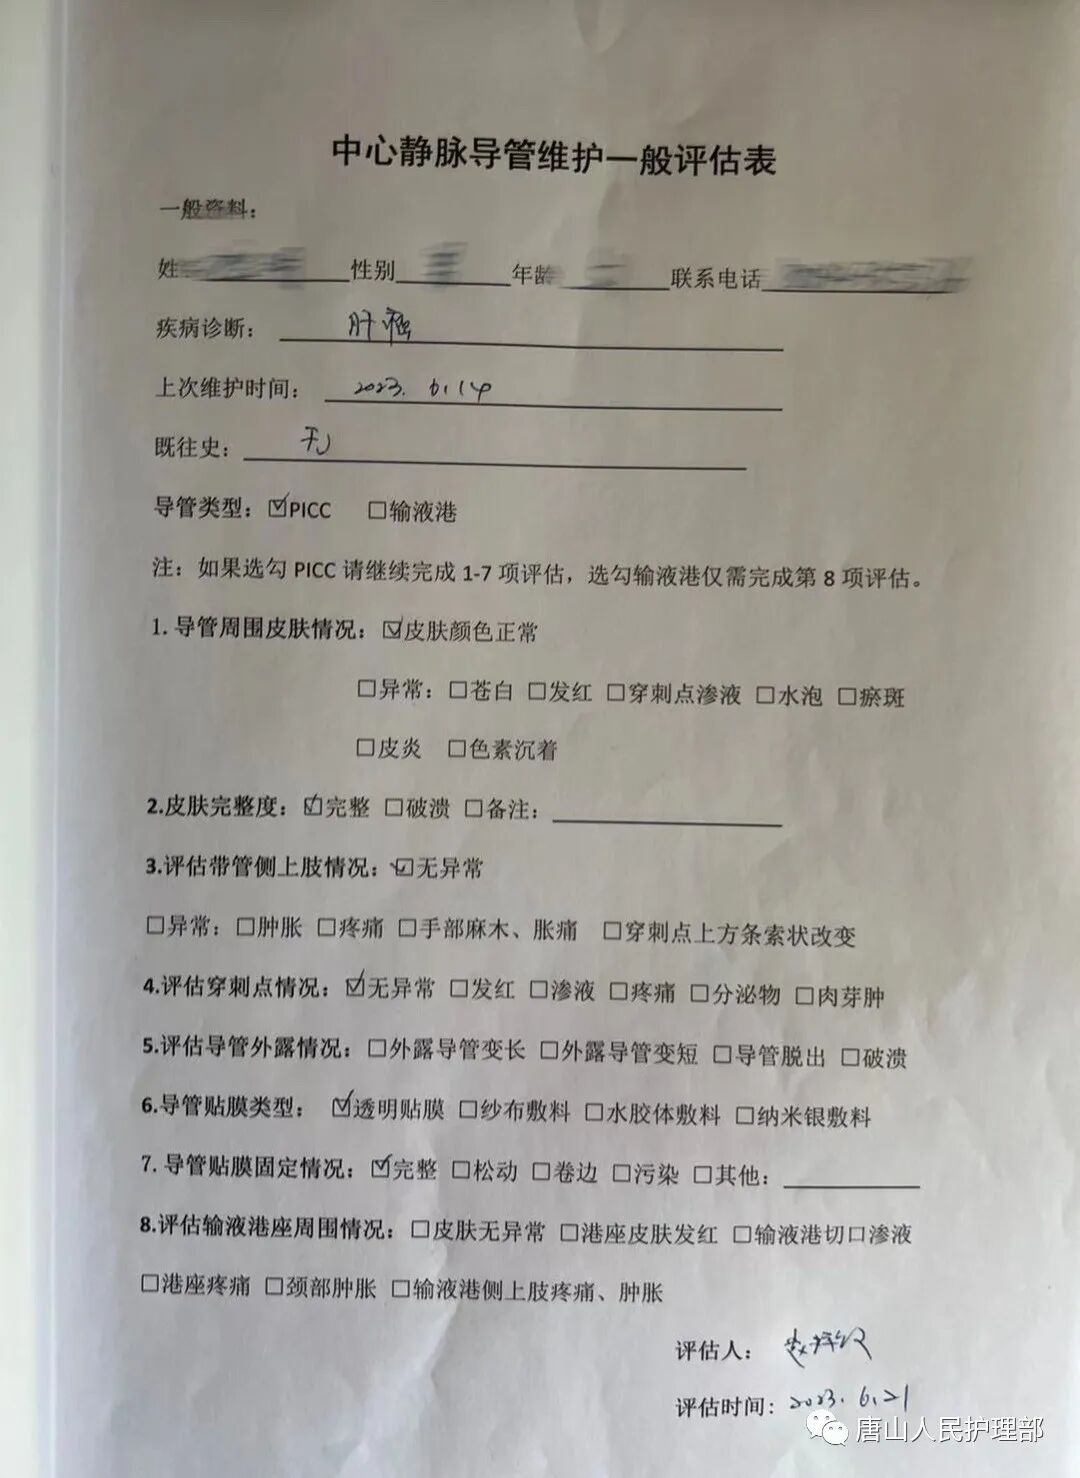 中心静脉导管维护一般评估表
一般资料：
姓 性别 年龄 联系电话
疾病诊断： 肝癌
上次维护时间： 2023. 6.14
既往史： 无
导管类型：☑PICC □输液港
注：如果选勾 PICC 请继续完成 1-7 项评估，选勾输液港仅需完成第 8 项评估。
1. 导管周围皮肤情况：☑皮肤颜色正常
□异常：□苍白 □发红 □穿刺点渗液 □水泡 □瘀斑
□皮炎 □色素沉着
2.皮肤完整度：☑完整 □破溃 □备注：
3.评估带管侧上肢情况：☑无异常
□异常：□肿胀 □疼痛 □手部麻木、胀痛 □穿刺点上方条索状改变
4.评估穿刺点情况：☑无异常 □发红 □渗液 □疼痛 □分泌物 □肉芽肿
5.评估导管外露情况：□外露导管变长 □外露导管变短 □导管脱出 □破溃
6.导管贴膜类型： ☑透明贴膜 □纱布敷料 □水胶体敷料 □纳米银敷料
7. 导管贴膜固定情况：☑完整 □松动 □卷边 □污染 □其他：
8.评估输液港座周围情况：□皮肤无异常 □港座皮肤发红 □输液港切口渗液
□港座疼痛 □颈部肿胀 □输液港侧上肢疼痛、肿胀
评估人：
评估时间：2023. 6.21
唐山人民护理部